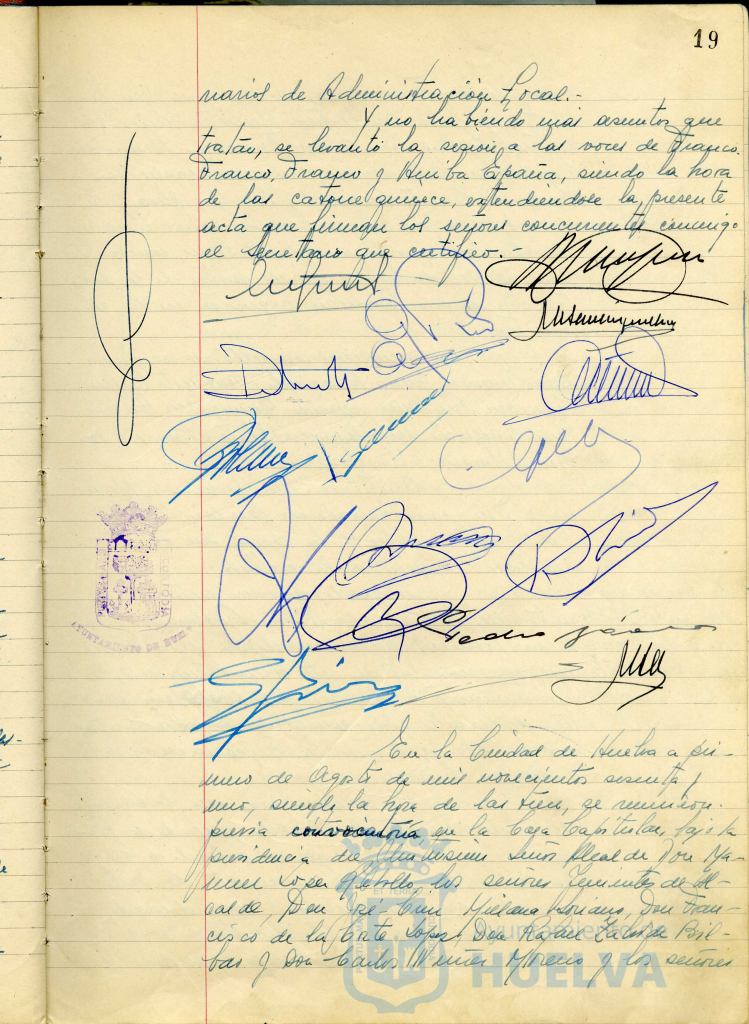 19
narios de Administración Local.-
Y no habiendo más asuntos que
tratar, se levantó la sesión a las voces de Franco.
Franco, Franco y Arriba España, siendo la hora
de las catorce quince, extendiéndose la presente
acta que firman los señores concurrentes conmigo
el Secretario que certifico.-
Pedro
AYUNTAMIENTO DE HUELVA
En la Ciudad de Huelva a pri-
mero de Agosto de mil novecientos sesenta y
uno, siendo la hora de las trece, se reunieron
previa convocatoria en la Casa Capitular, bajo la
presidencia del Ilustrísimo Señor Alcalde Don Ma-
nuel López Rebollo, los señores Tenientes de Al-
calde, Don José Luis Soriano, Don Fran-
cisco de la Corte López, Don Rafael Bil-
bao y Don Carlos Núñez Moreno y los señores
Ayuntamiento de
HUELVA